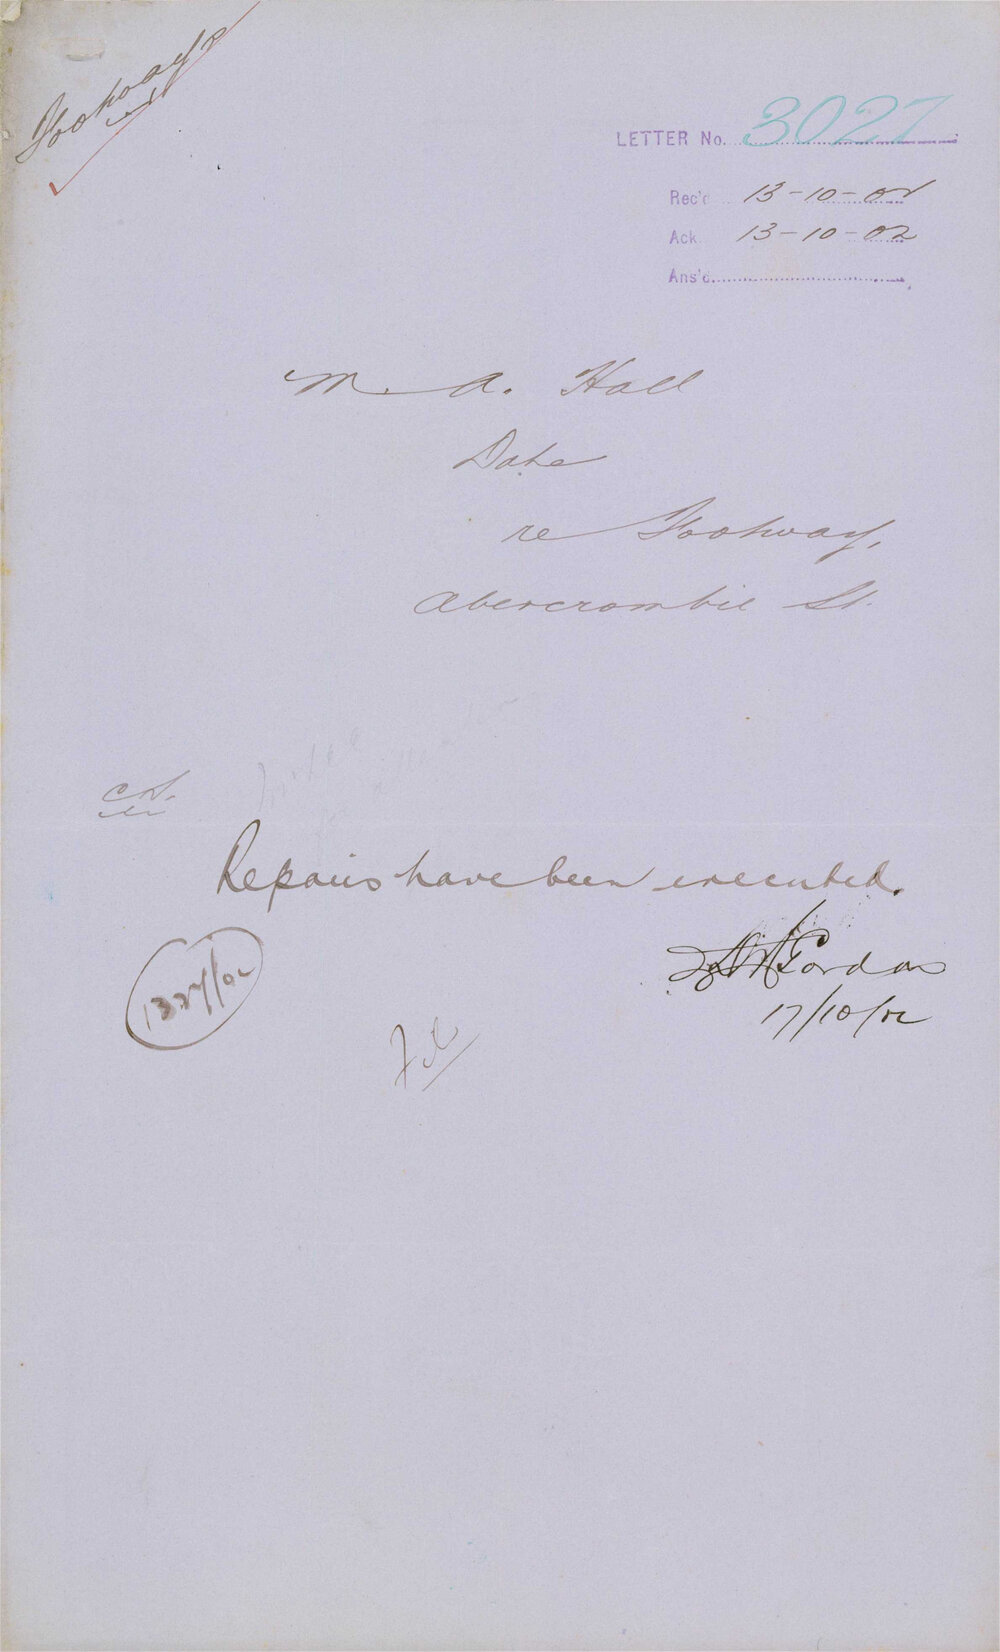 Footways
LETTER No. 3027
Rec'd 13-10-02
Ack 13-10-02
Ans'd.
M. A. Hall
Date
re Footway,
Abercrombie St.
Repairs have been executed.
Gordon
17/10/02
1327/02
File